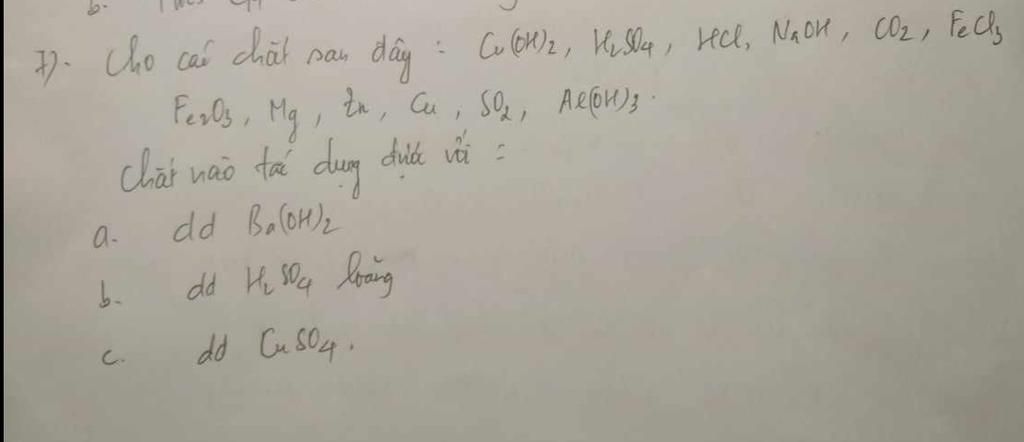 7). Cho các chất sau đây : Cu(OH)2, H2SO4, HCl, NaOH, CO2, FeCl3
Fe2O3, Mg, Zn, Cu, SO2, Al(OH)3.
Chất nào tác dụng được với :
a. dd Ba(OH)2
b. dd H2SO4 loãng
c. dd CuSO4.